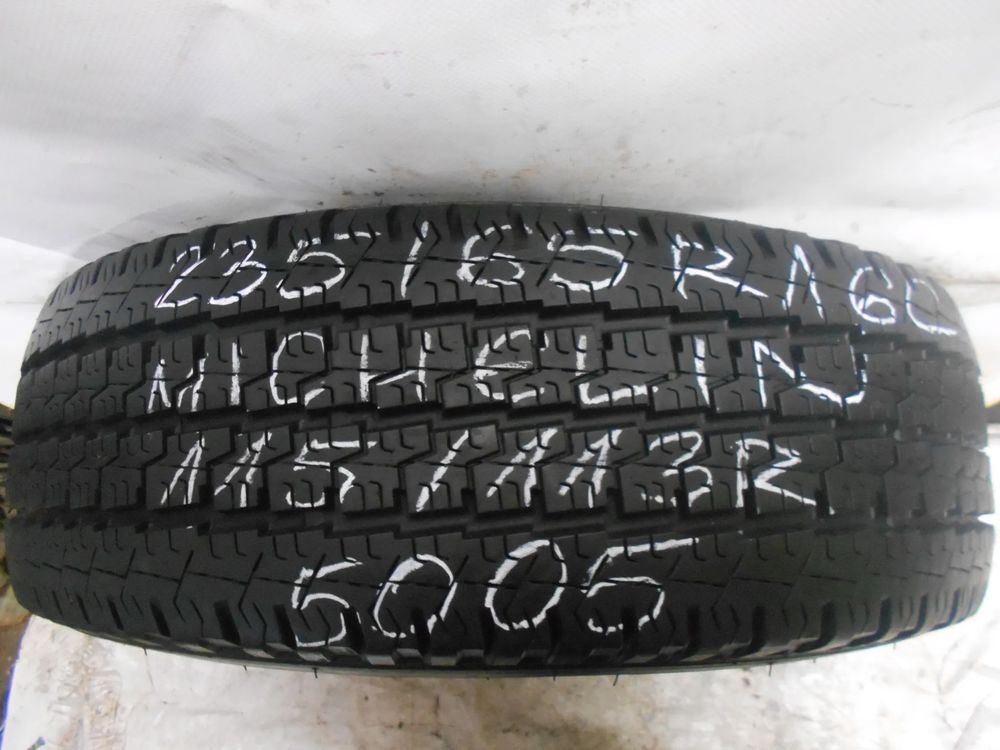 235/65R16C
MICHELIN
115/113R
5005